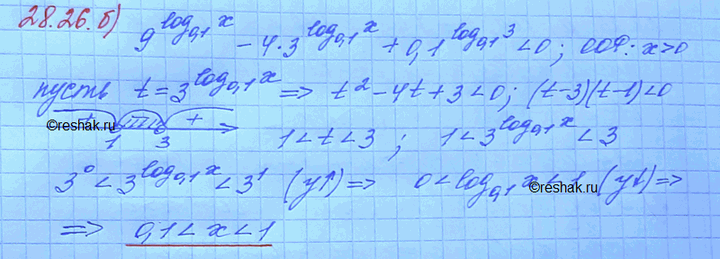 28.26.б) 9^{log_{0,1} x} - 4·3^{log_{0,1} x} + 0,1^{log_{0,1} 3} < 0; ООФ: x>0
пусть t = 3^{log_{0,1} x} => t² - 4t + 3 < 0; (t-3)(t-1) < 0
+ - + 1 3 1 < t < 3; 1 < 3^{log_{0,1} x} < 3
©reshak.ru
3⁰ < 3^{log_{0,1} x} < 3¹ (y↑) => 0 < log_{0,1} x < 1 (y↓) =>
©reshak.ru
=> 0,1 < x < 1